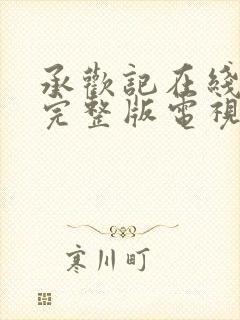 承歡記在綫
完整版電視
寒川町